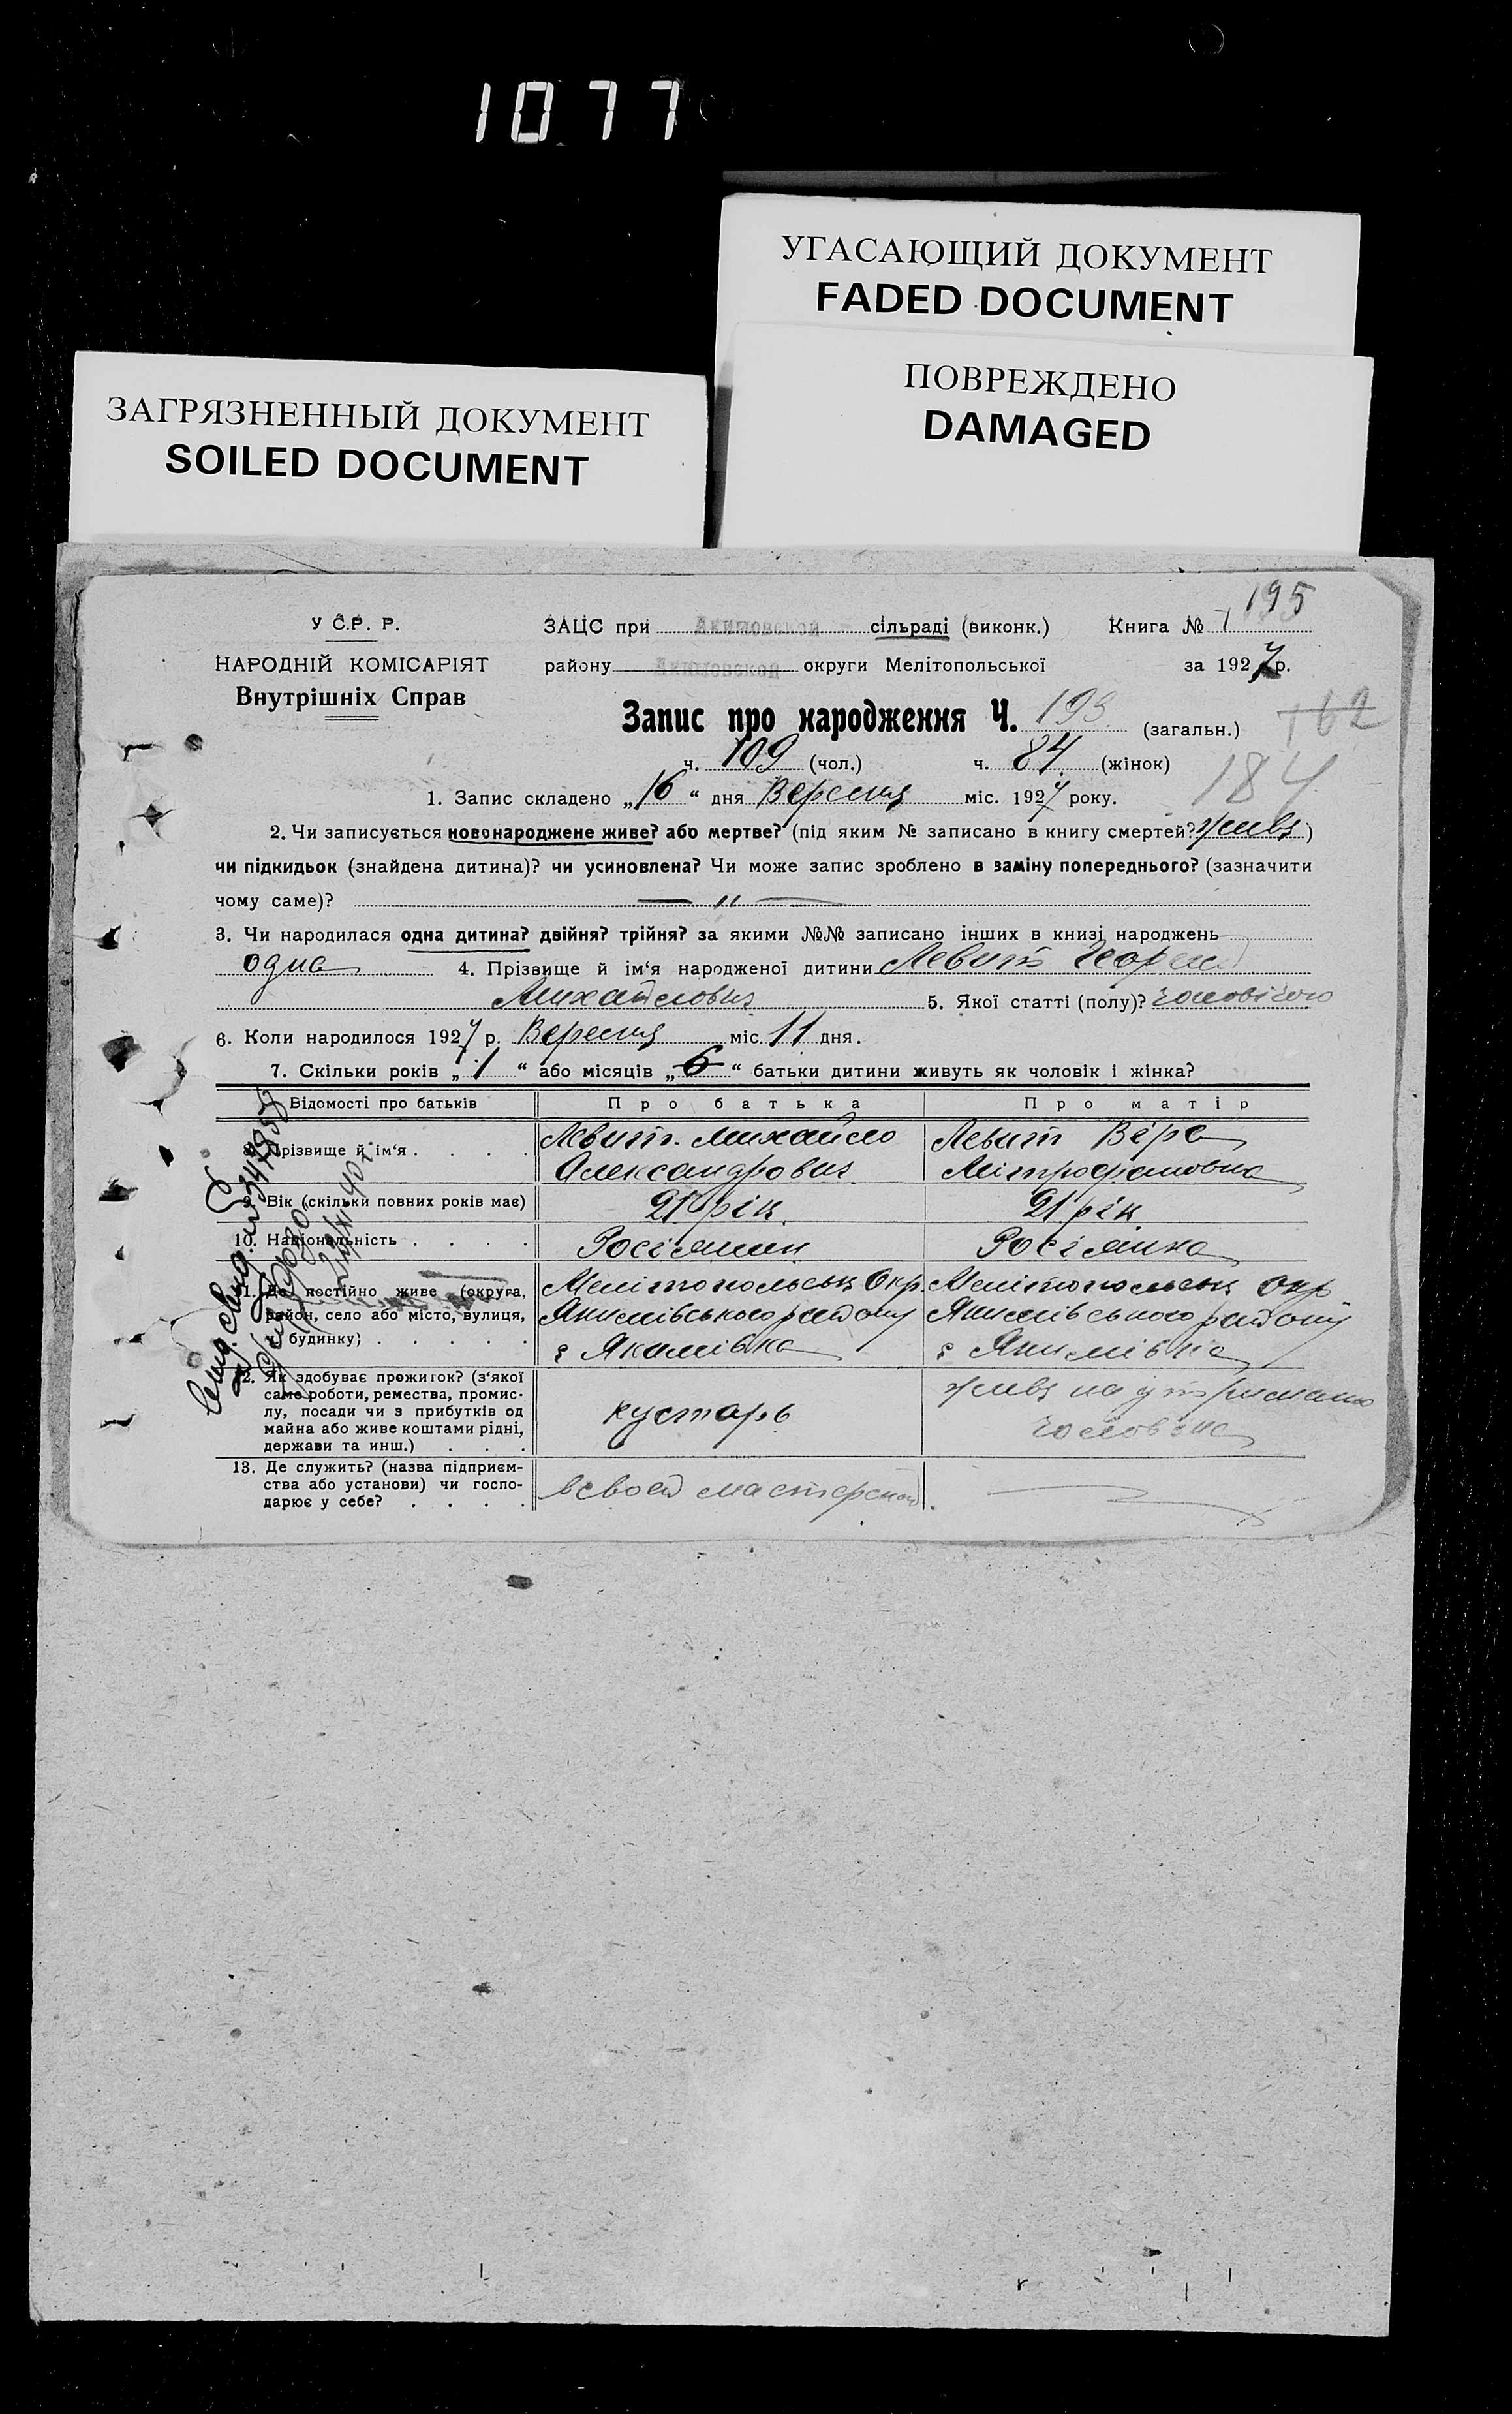 1077
УГАСАЮЩИЙ ДОКУМЕНТ
FADED DOCUMENT
ПОВРЕЖДЕНО
DAMAGED
ЗАГРЯЗНЕННЫЙ ДОКУМЕНТ
SOILED DOCUMENT
195
У С.Р. Р. ЗАЦС при Акимовской сільраді (виконк.) Книга № 1
НАРОДНІЙ КОМІСАРІЯТ району Акимовской округи Мелітопольської за 1927 р.
Внутрішніх Справ
Запис про народження Ч. 193 (загальн.) 162
ч. 109 (чол.) ч. 84 (жінок)
184
1. Запис складено „16“ дня Вересня міс. 1927 року.
2. Чи записується новонароджене живе? або мертве? (під яким № записано в книгу смертей? живе)
чи підкидьок (знайдена дитина)? чи усиновлена? Чи може запис зроблено в заміну попереднього? (зазначити
чому саме)? — " —
3. Чи народилася одна дитина? двійня? трійня? за якими №№ записано інших в книзі народжень
одна 4. Прізвище й ім‘я народженої дитини Левит Георгий
Михайлович 5. Якої статті (полу)? чоловічого
6. Коли народилося 1927 р. Вересня міс. 11 дня.
7. Скільки років „1“ або місяців „6“ батьки дитини живуть як чоловік і жінка?
Відомості про батьків Про батька Про матір
8. Прізвище й ім‘я . . . . Левит Михайло Левит Віра
Александрович Мітрофановна
9. Вік (скільки повних років має) 21 рік 21 рік
10. Національність . . . . Росіянин Росіянка
11. Де постійно живе (округа, Мелітопольськ Окр. Мелітопольськ Окр
район, село або місто, вулиця, Якимівського району Якимівського району
ч. будинку) . . . . . с Якимівка с Якимівка
12. Як здобуває прожиток? (з‘якої живе на утриманні
саме роботи, ремества, промис- чоловіка
лу, посади чи з прибутків од кустарь
майна або живе коштами рідні,
держави та инш.) . . .
13. Де служить? (назва підприєм-
ства або установи) чи госпо- в своей мастерской
дарює у себе? . . . .